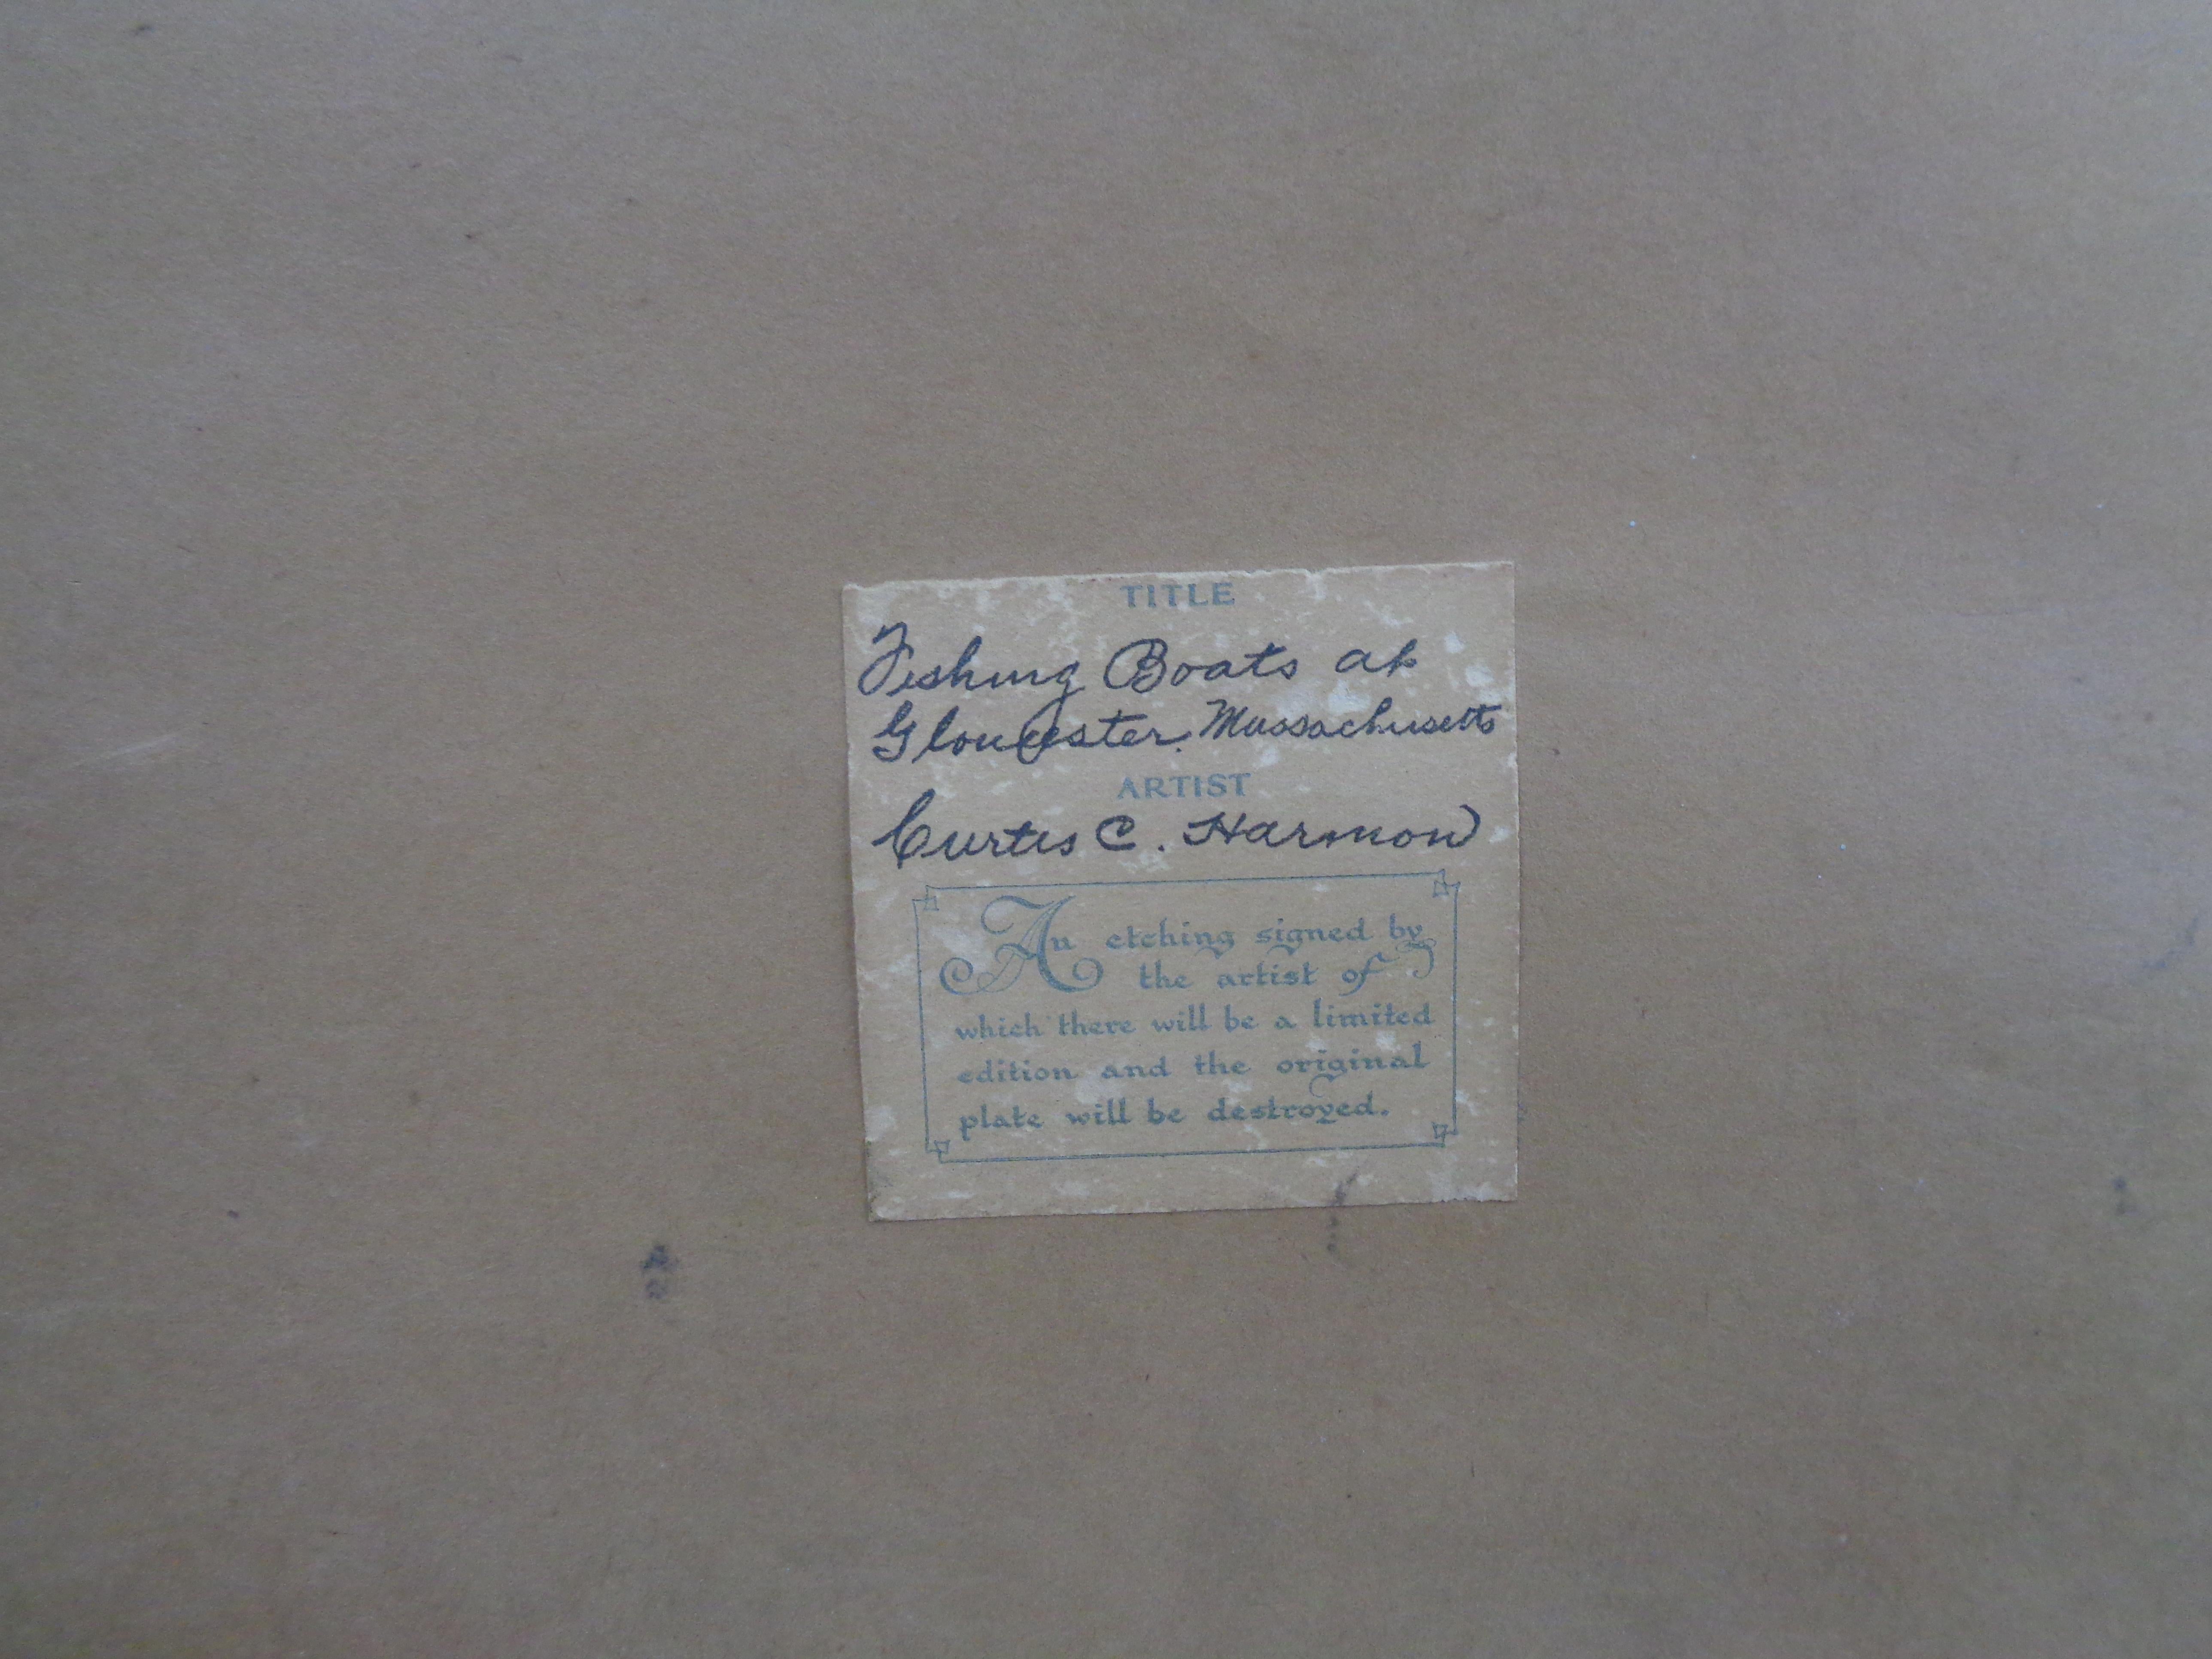 TITLE
Fishing Boats at
Gloucester. Massachusetts
ARTIST
Curtis C. Harmon
An etching signed by
the artist of
which there will be a limited
edition and the original
plate will be destroyed.